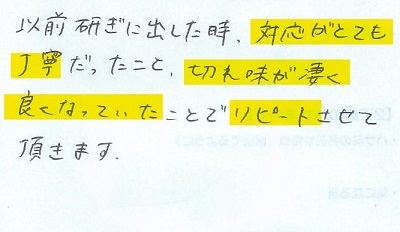 以前研ぎに出した時、対応がとても
丁寧だったこと、切れ味が凄く
良くなっていたことでリピートさせて
頂きます.